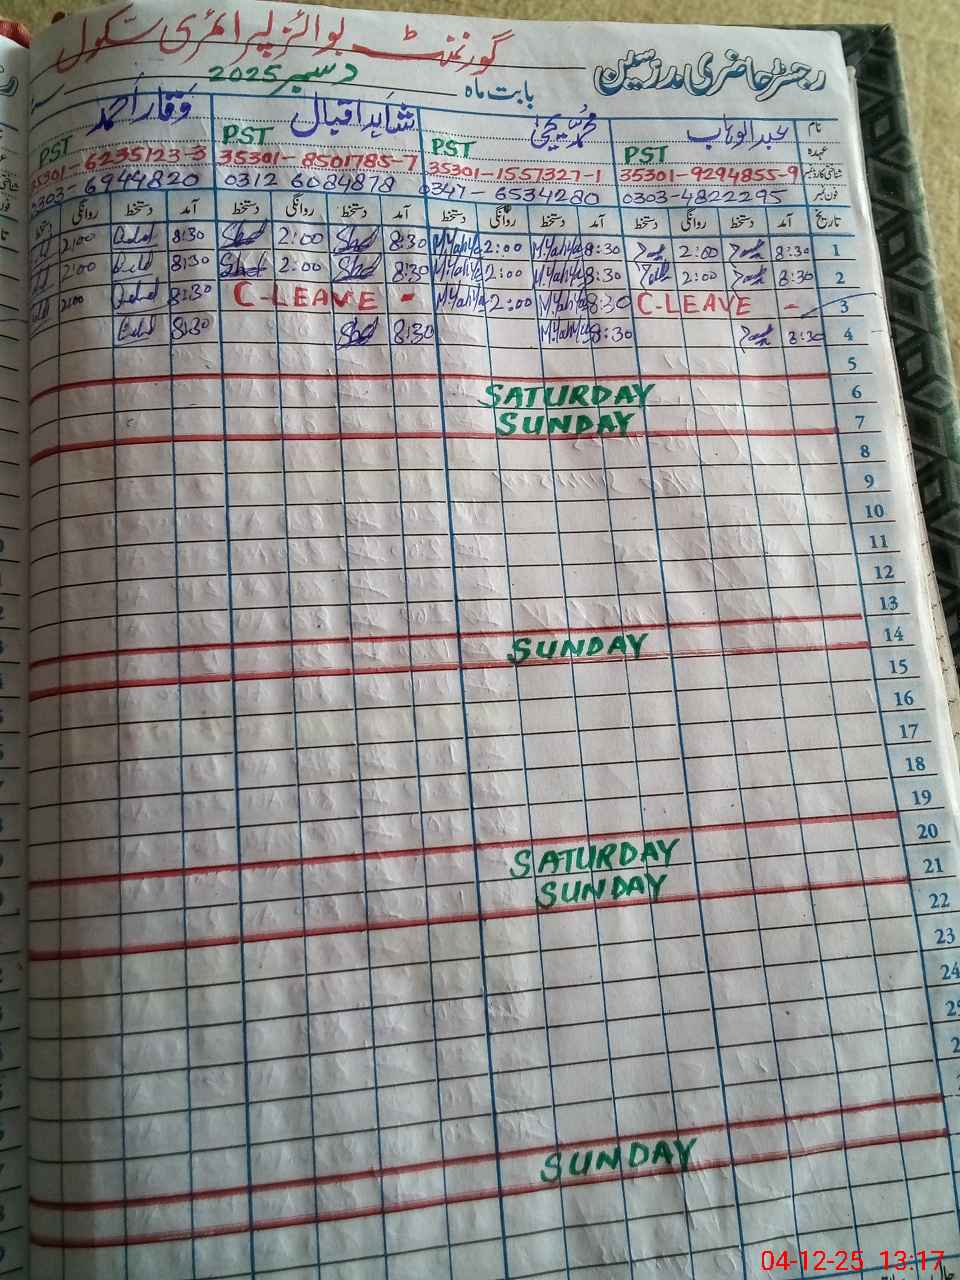 رجسٹر حاضری مدرسین گورنمنٹ بوائز پرائمری سکول
بابت ماہ دسمبر 2025
نام عبدالوہاب محمد یحییٰ شاہد اقبال وقار احمد
عہدہ PST PST PST PST
شناختی کارڈ نمبر 35301-9294855-9 35301-1557327-1 35301-8501785-7 35301-6235123-3
فون نمبر 0303-4822295 0347-6534280 0312 6084878 0303-6944820
تاریخ آمد دستخط روانگی دستخط آمد دستخط روانگی دستخط آمد دستخط روانگی دستخط آمد دستخط روانگی دستخط
1 8:30 2:00 8:30 M.Yahya 2:00 M.Yahya 8:30 Shd 2:00 Shd 8:30 2:00
2 8:30 2:00 8:30 M.Yahya 2:00 M.Yahya 8:30 Shd 2:00 Shd 8:30 2:00
3 C-LEAVE - 8:30 M.Yahya 2:00 M.Yahya C-LEAVE - 8:30 2:00
4 8:30 8:30 M.Yahya 8:30 Shd 8:30
5
6 SATURDAY
7 SUNDAY
8
9
10
11
12
13
14 SUNDAY
15
16
17
18
19
20 SATURDAY
21 SUNDAY
22
23
24
SUNDAY
04-12-25 13:17